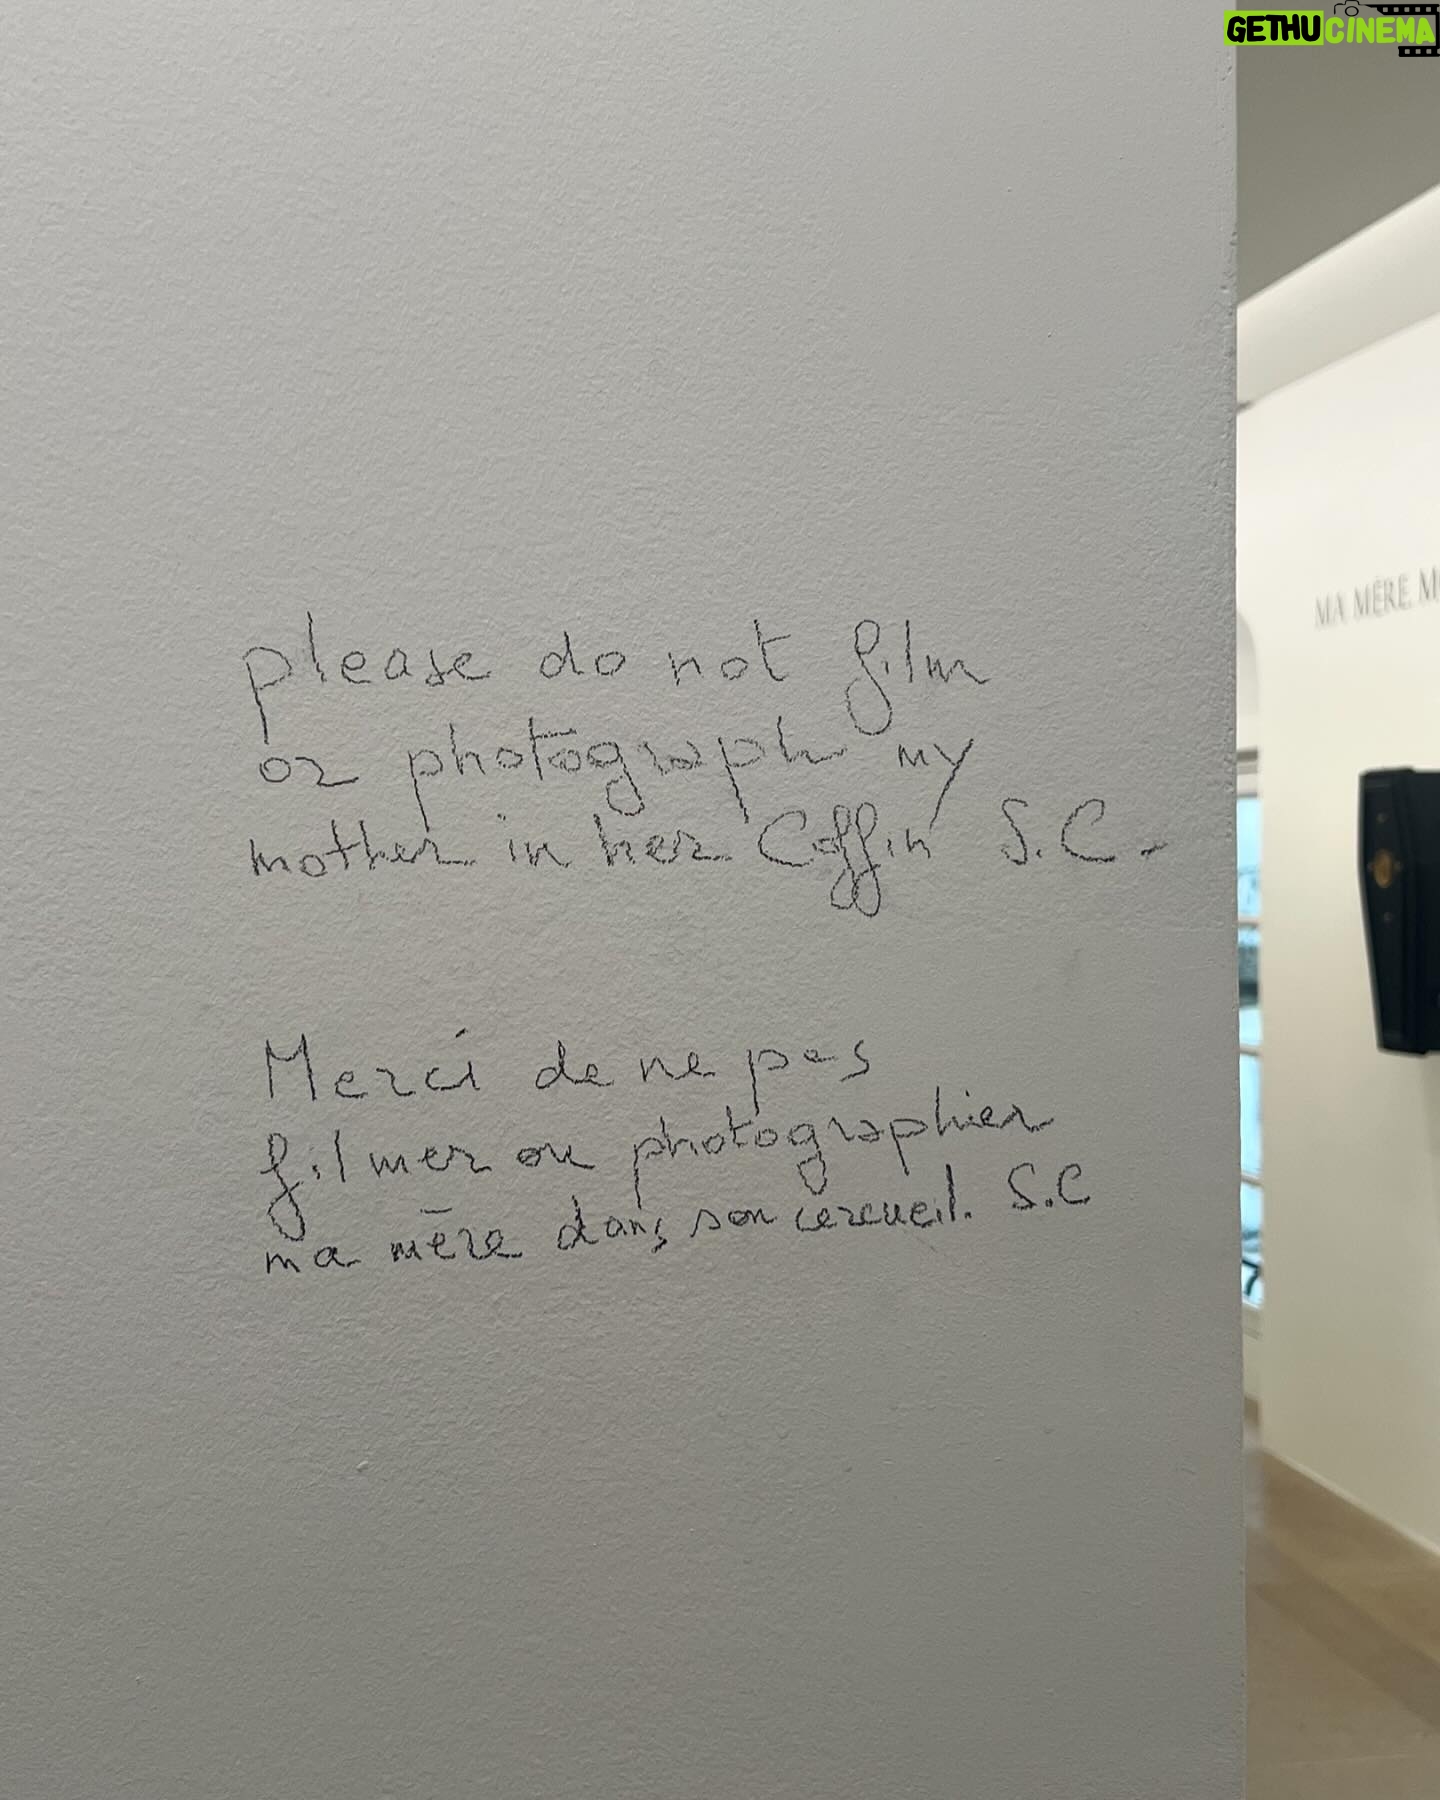 GETHUCINEMA
MA MÈRE, M
please do not film
or photograph my
mother in her Coffin S.C.-
Merci de ne pas
filmer ou photographier
ma mère dans son cercueil. S.C